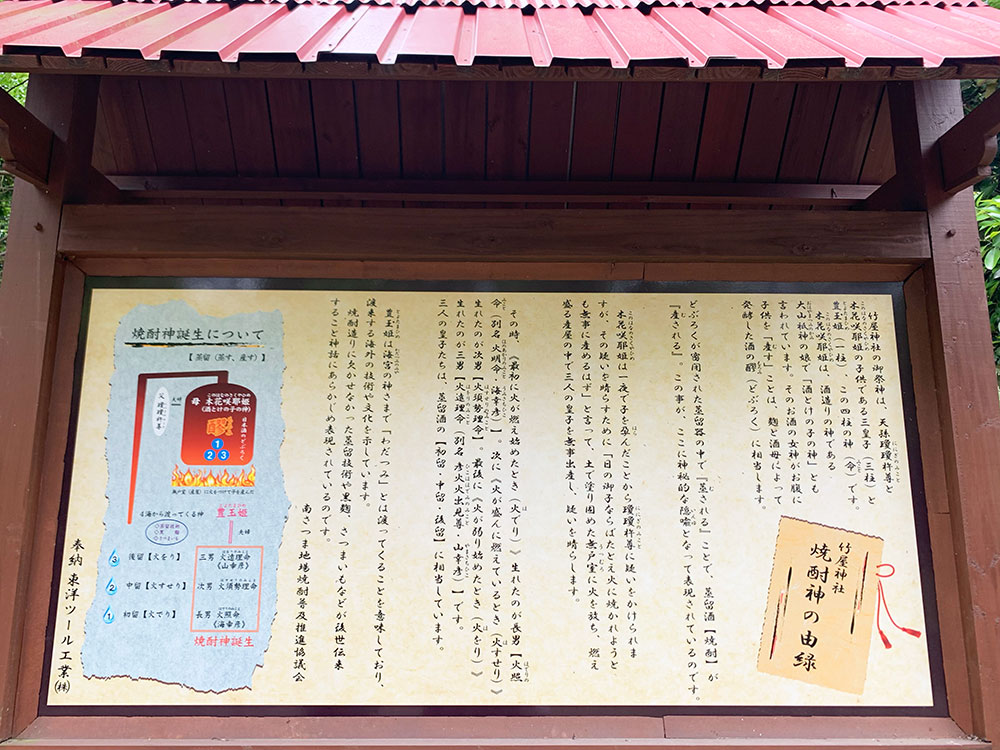 竹屋神社
焼酎神の由緑
竹屋神社の御祭神は、天孫瓊瓊杵尊と
木花咲耶姫の子供である三皇子（三柱）と
豊玉姫（一柱）、この四柱の神（令）です。
木花咲耶姫は、酒造りの神である
大山祇神の娘で「酒とけの子の神」とも
言われています。そのお酒の女神がお腹に
子供を「産す」ことは、麹と酒母によって
発酵した酒の醪（どぶろく）に相当します。
どぶろくが密閉された蒸留器の中で『蒸される』ことで、蒸留酒【焼酎】が
『産される』。この事が、ここに神秘的な隠喩となって表現されているのです。
木花咲耶姫は一夜で子を孕んだことから瓊瓊杵尊に疑いをかけられま
すが、その疑いを晴らすために「日の御子ならばたとえ火に焼かれようと
も無事に産めるはず」と言って、土で塗り固めた無戸室に火を放ち、燃え
盛る産屋の中で三人の皇子を無事出産し、疑いを晴らします。
その時、《最初に火が燃え始めたとき（火でり）》生れたのが長男【火照
令（別名 火明令・海幸彦）】。次に《火が盛んに燃えているとき（火すせり）》
生れたのが次男【火須勢理令】。最後に《火が弱り始めたとき（火をり）》
生れたのが三男【火遠理令（別名 彦火火出見尊・山幸彦）】です。
三人の皇子たちは、蒸留酒の【初留・中留・後留】に相当しています。
豊玉姫は海宮の神さまで「わだつみ」とは渡ってくることを意味しており、
渡来する海外の技術や文化を示しています。
焼酎造りに欠かせなかった蒸留技術や黒麹、さつまいもなどが後世伝来
することが神話にあらかじめ表現されているのです。
南さつま地場焼酎普及推進協議会
焼酎神誕生について
【蒸留（蒸す、産す）】
母 木花咲耶姫
（酒とけの子の神）
日本酒のどぶろく
醪
①
② ③
夫婦
父 瓊瓊杵尊
無戸室（産屋）に火をつけて子を産んだ
4海から渡ってくる神
豊玉姫
◎蒸留技術
◎黒麹
◎さつまいも
夫婦
3 後留【火をり】
三男 火遠理命
《山幸彦》
2 中留【火すせり】
次男 火須勢理命
1 初留【火でり】
長男 火照命
《海幸彦》
焼酎神誕生
奉納 東洋ツール工業㈱